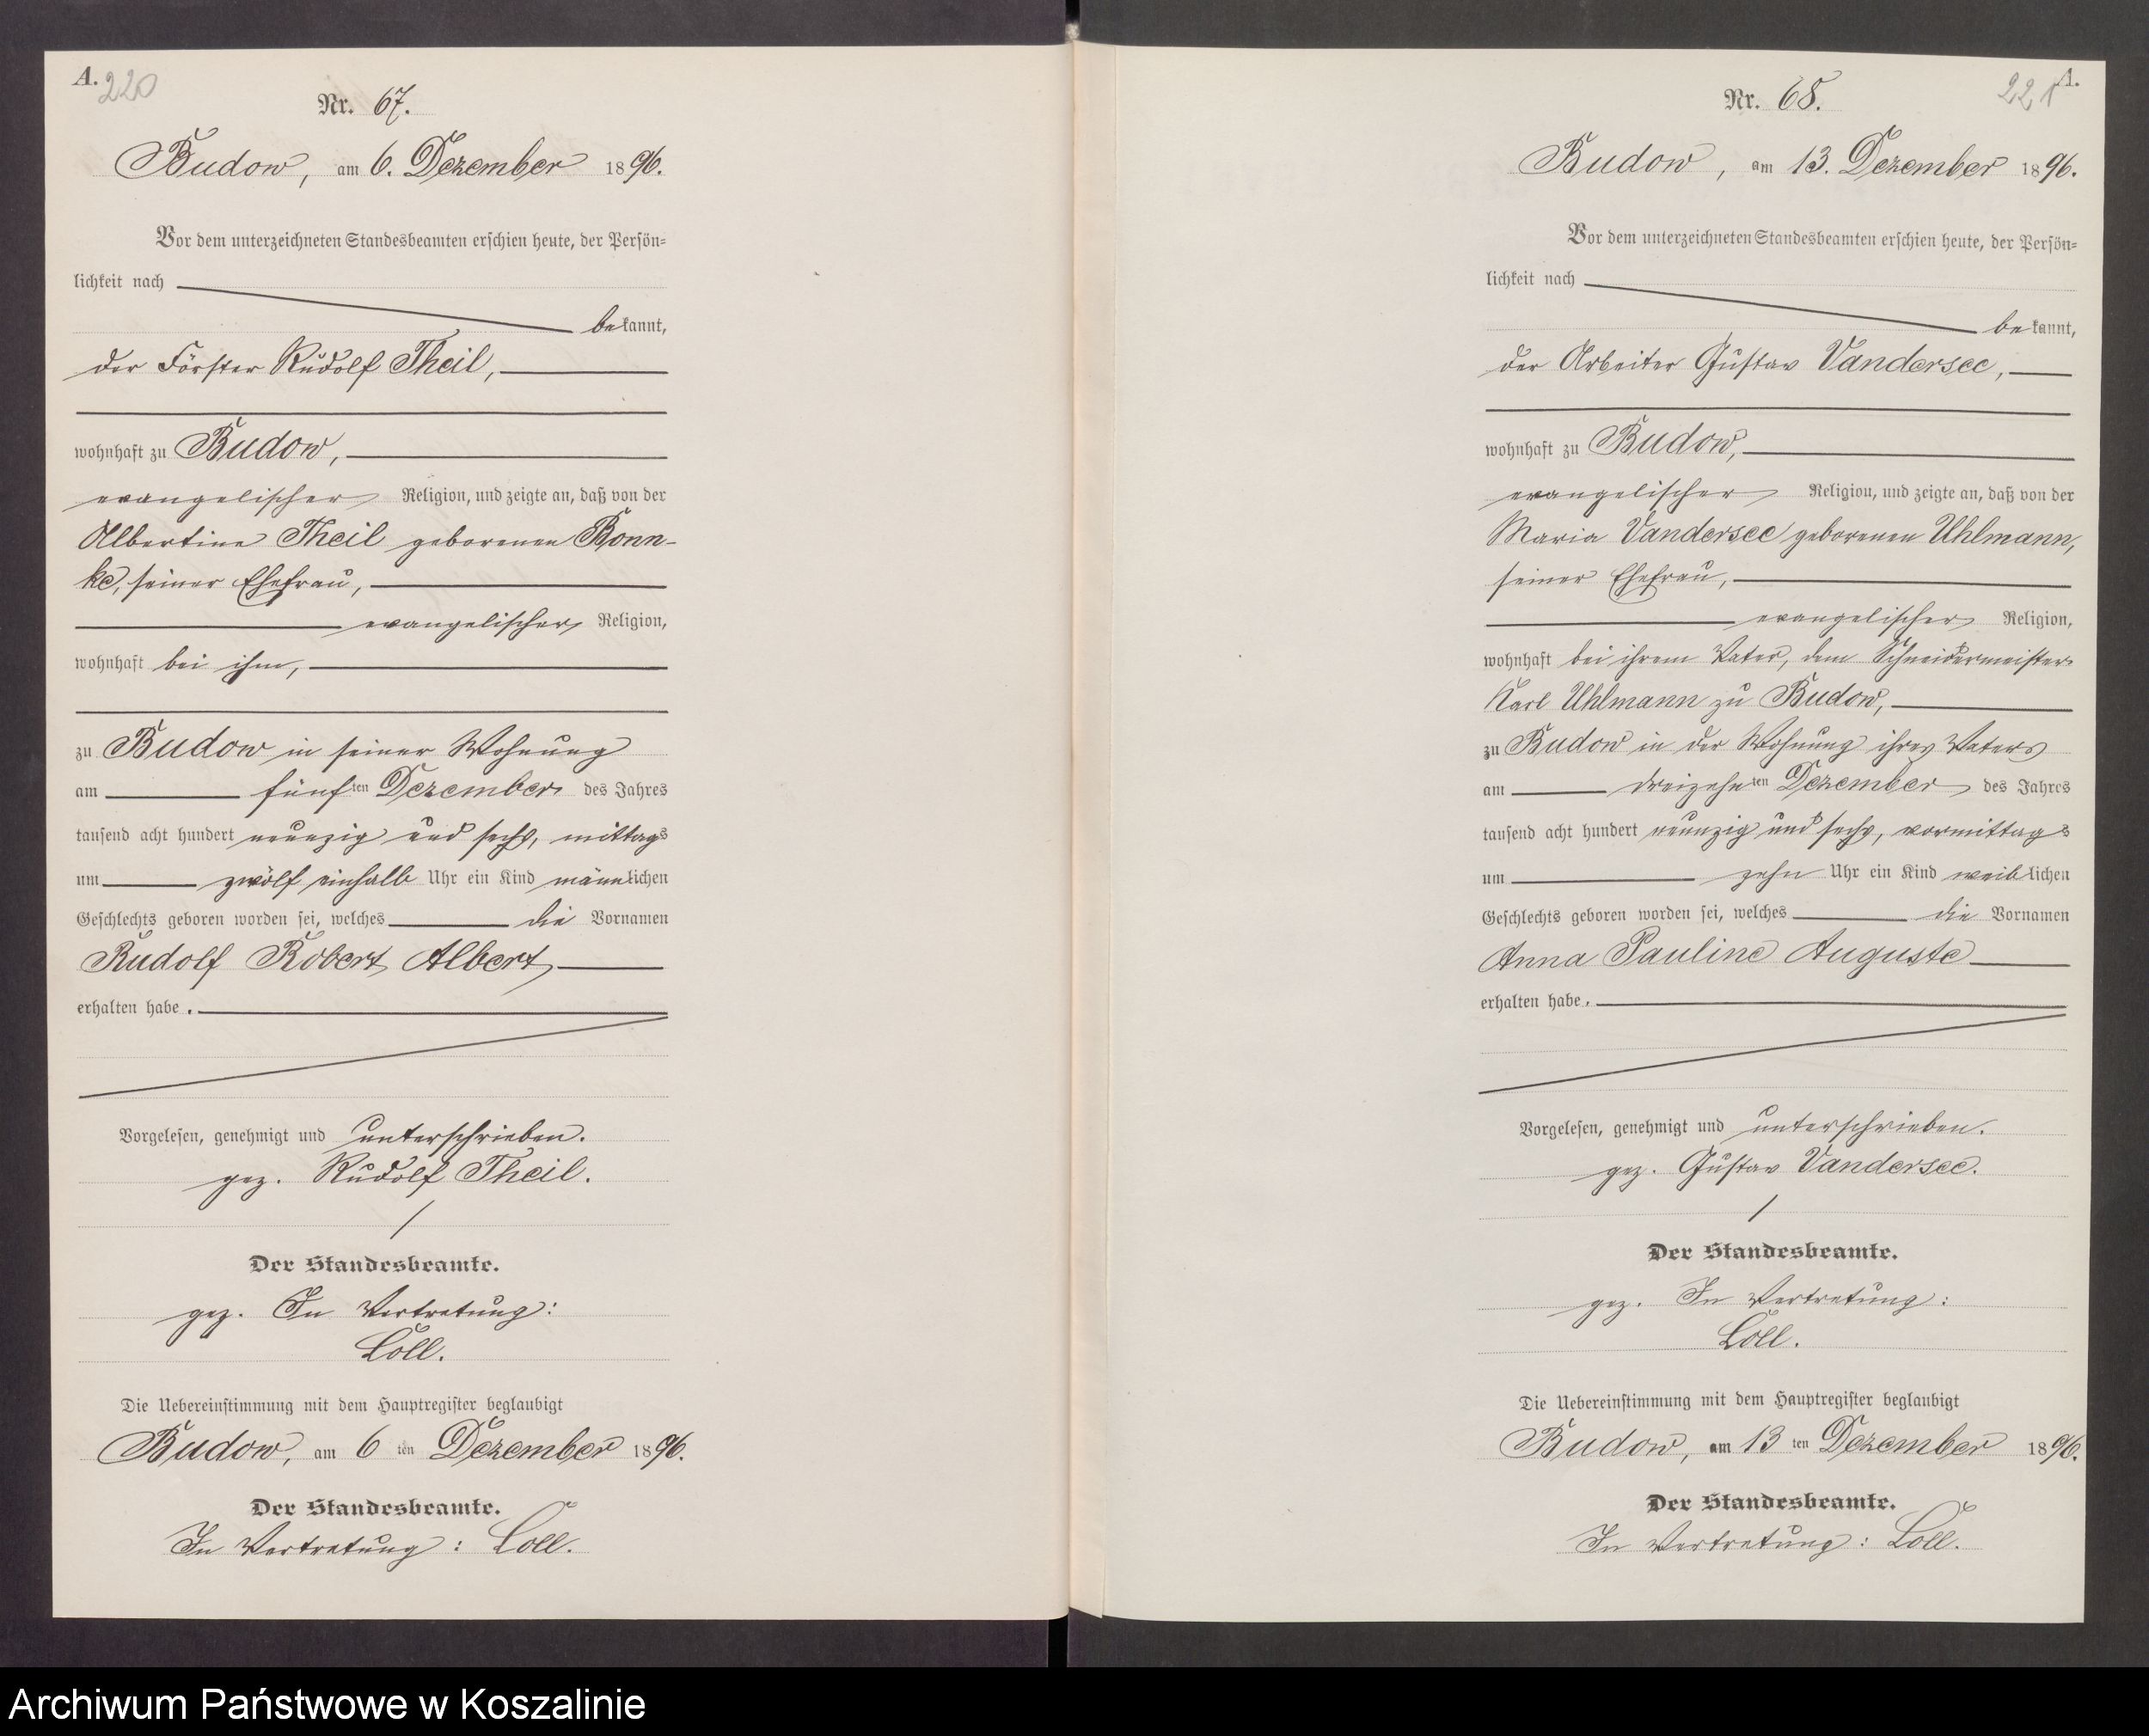 A. 220
Nr. 67.
Budow, am 6. Dezember 1896.
Vor dem unterzeichneten Standesbeamten erschien heute, der Persön=
lichkeit nach
bekannt,
der Förster Rudolf Theil,
wohnhaft zu Budow,
evangelischer Religion, und zeigte an, daß von der
Albertine Theil geborenen Bonn-
ke, seiner Ehefrau,
evangelischer Religion,
wohnhaft bei ihm,
zu Budow in seiner Wohnung
am fünften Dezember des Jahres
tausend acht hundert neunzig und sechs, mittags
um zwölf einhalb Uhr ein Kind männlichen
Geschlechts geboren worden sei, welches die Vornamen
Rudolf Robert Albert
erhalten habe.
Vorgelesen, genehmigt und unterschrieben.
gez. Rudolf Theil.
Der Standesbeamte.
gez. In Vertretung:
Loll.
Die Uebereinstimmung mit dem Hauptregister beglaubigt
Budow, am 6 ten Dezember 1896.
Der Standesbeamte.
In Vertretung: Loll.
221 A.
Nr. 68.
Budow, am 13. Dezember 1896.
Vor dem unterzeichneten Standesbeamten erschien heute, der Persön=
lichkeit nach
bekannt,
der Arbeiter Gustav Vandersee,
wohnhaft zu Budow,
evangelischer Religion, und zeigte an, daß von der
Maria Vandersee geborenen Uhlmann,
seiner Ehefrau,
evangelischer Religion,
wohnhaft bei ihrem Vater, dem Schneidermeister
Karl Uhlmann zu Budow,
zu Budow in der Wohnung ihres Vaters
am dreizehnten Dezember des Jahres
tausend acht hundert neunzig und sechs, vormittags
um zehn Uhr ein Kind weiblichen
Geschlechts geboren worden sei, welches die Vornamen
Anna Pauline Auguste
erhalten habe.
Vorgelesen, genehmigt und unterschrieben.
gez. Gustav Vandersee.
Der Standesbeamte.
gez. In Vertretung:
Loll.
Die Uebereinstimmung mit dem Hauptregister beglaubigt
Budow, am 13 ten Dezember 1896.
Der Standesbeamte.
In Vertretung: Loll.
Archiwum Państwowe w Koszalinie